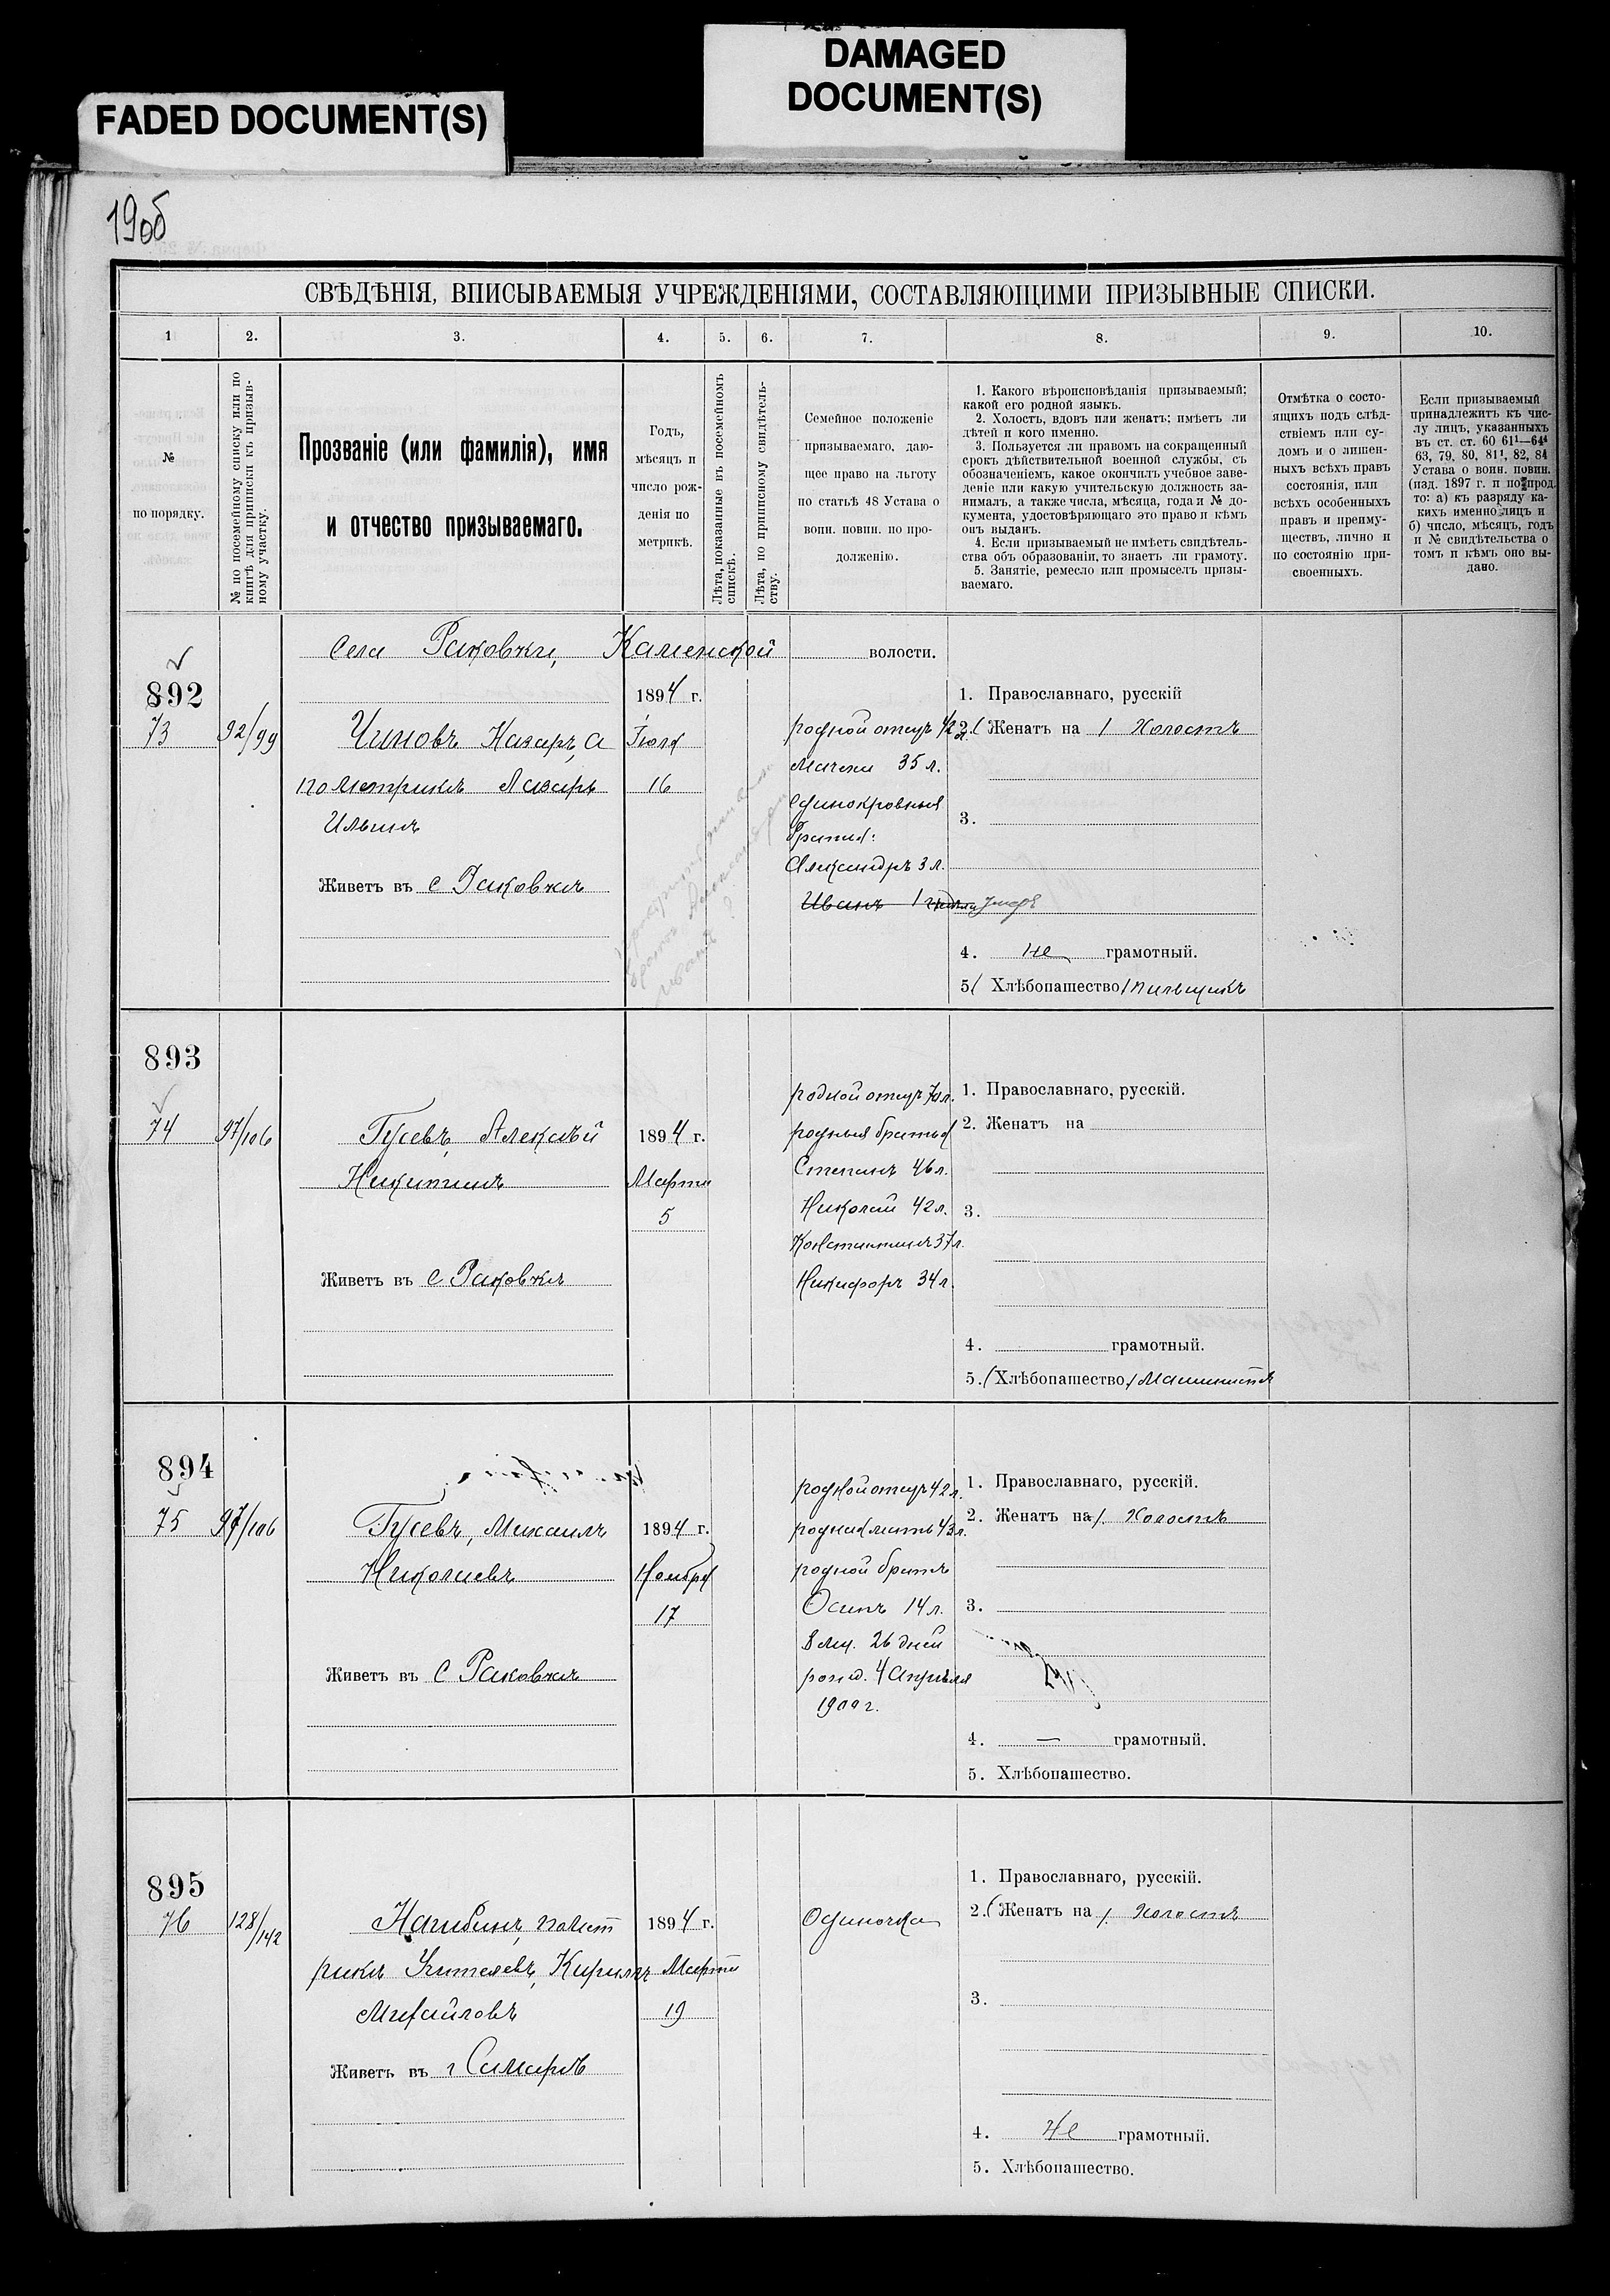 FADED DOCUMENT(S)
DAMAGED
DOCUMENT(S)
190б
СВѢДѢНІЯ, ВПИСЫВАЕМЫЯ УЧРЕЖДЕНІЯМИ, СОСТАВЛЯЮЩИМИ ПРИЗЫВНЫЕ СПИСКИ.
1
2.
3.
4.
5.
6.
7.
8.
9.
10.
№
по порядку.
№ по посемейному списку или по
книгѣ для приписки къ призыв-
ному участку.
Прозваніе (или фамилія), имя
и отчество призываемаго.
Годъ,
мѣсяцъ и
число рож-
денія по
метрикѣ.
Лѣта, показанные въ посемейномъ
спискѣ.
Лѣта, по приписному свидѣтель-
ству.
Семейное положеніе
призываемаго, даю-
щее право на льготу
по статьѣ 48 Устава о
воин. повин. по про-
долженію.
1. Какого вѣроисповѣданія призываемый;
какой его родной языкъ.
2. Холостъ, вдовъ или женатъ; имѣетъ ли
дѣтей и кого именно.
3. Пользуется ли правомъ на сокращенный
срокъ дѣйствительной военной службы, съ
обозначеніемъ, какое окончилъ учебное заве-
деніе или какую учительскую должность за-
нималъ, а также числа, мѣсяца, года и № до-
кумента, удостовѣряющаго это право и кѣмъ
онъ выданъ.
4. Если призываемый не имѣетъ свидѣтель-
ства объ образованіи, то знаетъ ли грамоту.
5. Занятіе, ремесло или промыселъ призы-
ваемаго.
Отмѣтка о состо-
ящихъ подъ слѣд-
ствіемъ или су-
домъ и о лишен-
ныхъ всѣхъ правъ
состоянія, или
всѣхъ особенныхъ
правъ и преиму-
ществъ, лично и
по состоянію при-
своенныхъ.
Если призываемый
принадлежитъ къ чис-
лу лицъ, указанныхъ
въ ст. ст. 60 61¹—64⁴
63, 79, 80, 81¹, 82, 84
Устава о воин. повин.
(изд. 1897 г. и по прод.
то: а) къ разряду ка-
кихъ именно лицъ и
б) число, мѣсяцъ, годъ
и № свидѣтельства о
томъ и кѣмъ оно вы-
дано.
Села Раковки, Каменской волости.
892
73
92/99
Чиновъ Назаръ, а
по метрикѣ Лазарь
Ильинъ
Живетъ въ с Раковкѣ
1894 г.
Іюля
16
родной отецъ 42 л.
мачеха 35 л.
единокровныя
братья:
Александръ 3 л.
Иванъ 1 умеръ
1. Православнаго, русскій
2. ( Женатъ на ) Холостъ
3.
4. не грамотный.
5 ( Хлѣбопашество ) пильщикъ
893
74
97/106
Гусевъ, Алексѣй
Никитинъ
Живетъ въ с Раковкѣ
1894 г.
Марта
5
родной отецъ 70 л.
родныя братья
Степанъ 46 л.
Николай 42 л.
Константинъ 37 л.
Никифоръ 34 л.
1. Православнаго, русскій.
2. Женатъ на
3.
4. грамотный.
5. ( Хлѣбопашество, ) Машинистъ
894
75
97/106
Гусевъ, Михаилъ
Николаевъ
Живетъ въ с Раковкѣ
1894 г.
Ноября
17
родной отецъ 42 л.
родная мать 43 л.
родной братъ
Осипъ 14 л.
8 мц. 26 дней
рожд. 4 Апрѣля
1900 г.
1. Православнаго, русскій.
2. Женатъ на ). Холостъ
3.
4. — грамотный.
5. Хлѣбопашество.
895
76
128/142
Нагибинъ, по мет
рикѣ Учителевъ, Кириллъ
Михайловъ
Живетъ въ г Самарѣ
1894 г.
Марта
19
Одиночка
1. Православнаго, русскій.
2. ( Женатъ на ). Холостъ
3.
4. Не грамотный.
5. Хлѣбопашество.